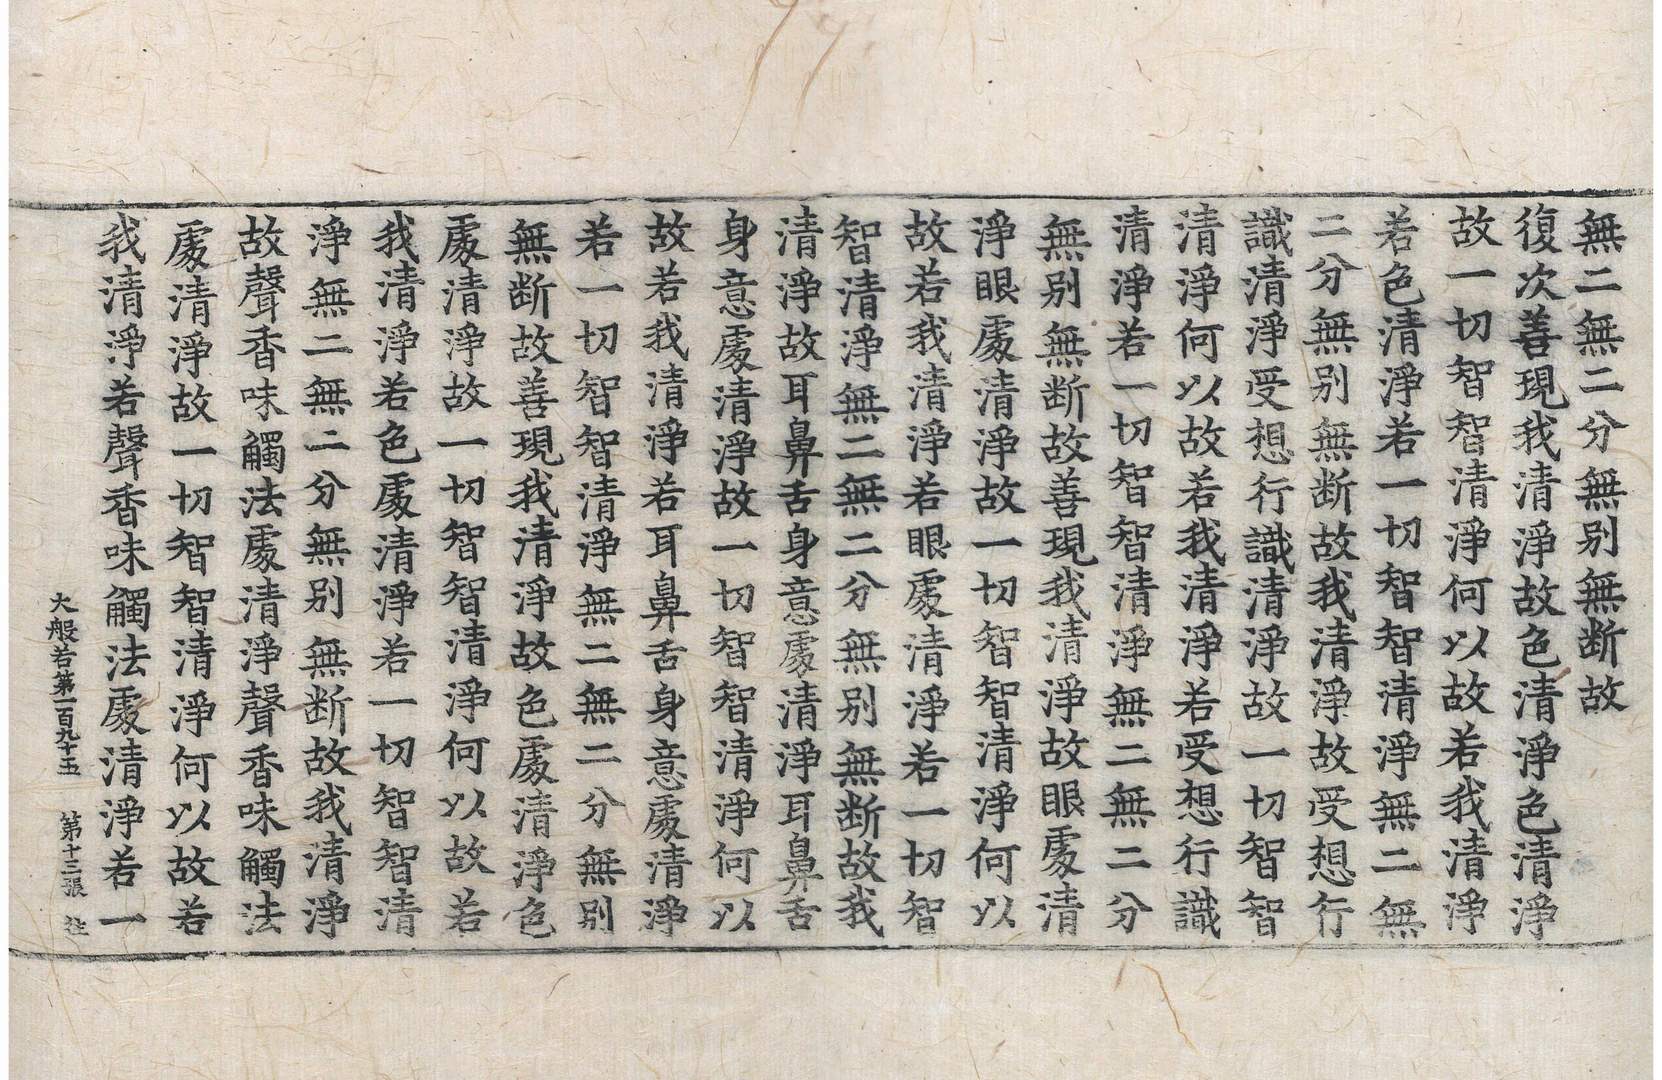 無二無二分無別無断故
復次善現我清淨故色清淨色清淨
故一切智智清淨何以故若我清淨
若色清淨若一切智智清淨無二無
二分無別無断故我清淨故受想行
識清淨受想行識清淨故一切智智
清淨何以故若我清淨若受想行識
清淨若一切智智清淨無二無二分
無別無断故善現我清淨故眼處清
淨眼處清淨故一切智智清淨何以
故若我清淨若眼處清淨若一切智
智清淨無二無二分無別無断故我
清淨故耳鼻舌身意處清淨耳鼻舌
身意處清淨故一切智智清淨何以
故若我清淨若耳鼻舌身意處清淨
若一切智智清淨無二無二分無別
無断故善現我清淨故色處清淨色
處清淨故一切智智清淨何以故若
我清淨若色處清淨若一切智智清
淨無二無二分無別無断故我清淨
故聲香味觸法處清淨聲香味觸法
處清淨故一切智智清淨何以故若
我清淨若聲香味觸法處清淨若一
大般若第一百九十五 第十三張